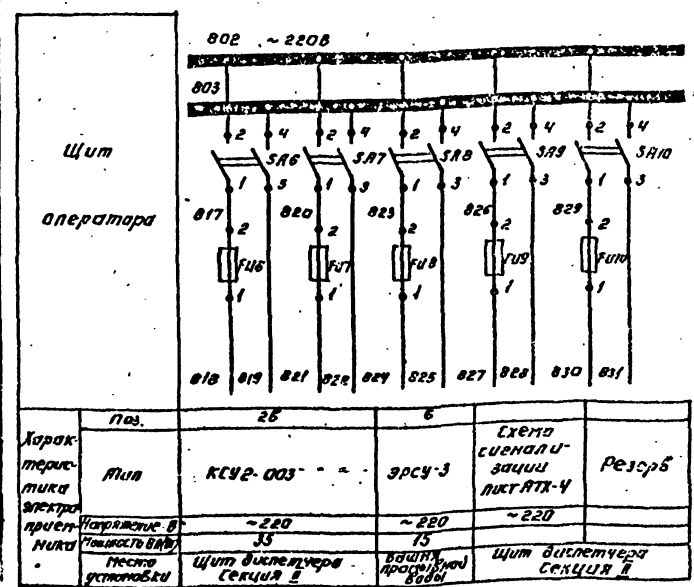 802 ~ 220В
803
Щит
оператора
2 4 2 4 2 4 2 4 2 4
SA6 SA7 SA8 SA9 SA10
1 3 1 3 1 3 1 3 1 3
817 820 823 826 829
2 2 2 2 2
FU6 FU7 FU8 FU9 FU10
1 1 1 1 1
818 819 821 822 824 825 827 828 830 831
Харак-
терис-
тика
электро
прием-
ника
Поз. 2б 6
Тип КСУ2-003 ЭРСУ-3
Схема
сигнали-
зации
лист АТХ-4
Резерв
Напряжение В ~220 ~220 ~220
Мощность ВА(Вт) 35 15
Место
установки
Щит диспетчера
Секция II
Башня
промывной
воды
Щит диспетчера
Секция II